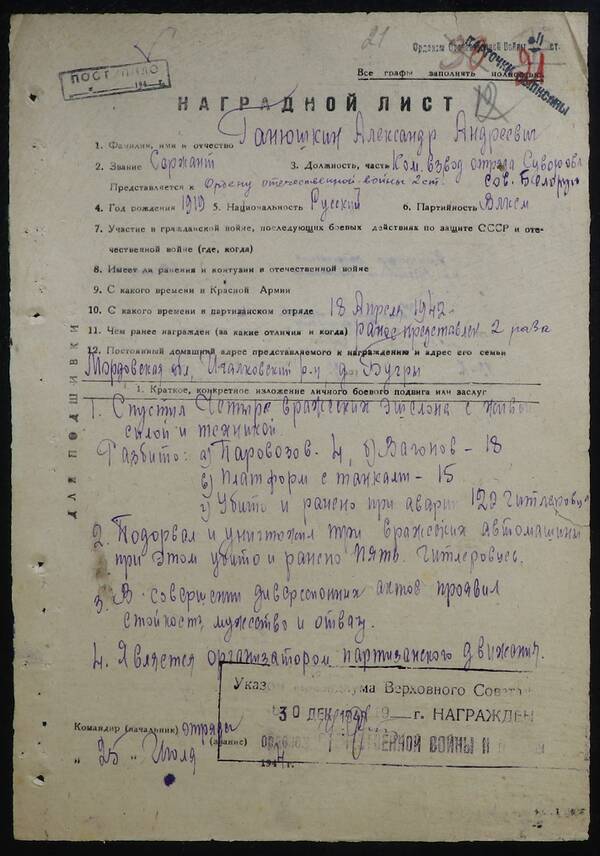 21
Орденом Отечественной Войны II ст.
30 21
Карточки выписаны
ПОСТУПИЛО
Все графы заполнять полностью.
НАГРАДНОЙ ЛИСТ
12
1. Фамилия, имя и отчество Ганюшкин Александр Андреевич
2. Звание Сержант 3. Должность, часть Ком. взвод отряда Суворова
Представляется к Ордену отечественной войны 2 ст.
4. Год рождения 1919 5. Национальность Русский 6. Партийность Влксм
7. Участие в гражданской войне, последующих боевых действиях по защите СССР и оте-
чественной войне (где, когда)
8. Имеет ли ранения и контузии в отечественной войне
9. С какого времени в Красной Армии
10. С какого времени в партизанском отряде 18 Апреля 1942
11. Чем ранее награжден (за какие отличия и когда) ранее представлен 2 раза
12. Постоянный домашний адрес представляемого к награждению и адрес его семьи
Мордовская Ичалковский р-н д. Бугры
1. Краткое, конкретное изложение личного боевого подвига или заслуг
ДЛЯ ПОДШИВКИ
1. Спустил Четыре вражеских эшелона с живой
силой и техникой.
Разбито: а) Паровозов - 4, б) Вагонов - 18
в) Платформ с танками - 15
г) Убито и ранено при аварии 122 гитлеровца
2. Подорвал и уничтожил три вражеских автомашины
при этом убито и ранено пять гитлеровцев.
3. В совершении диверсионных актов проявил
стойкость, мужество и отвагу.
4. Является организатором партизанского движения.
Указом Президиума Верховного Совета
30 ДЕК г. НАГРАЖДЕН
ОРДЕНОМ ОТЕЧЕСТВЕННОЙ ВОЙНЫ II
Командир (начальник) отряда
(звание)
„ 25 " Июля 1944 г.